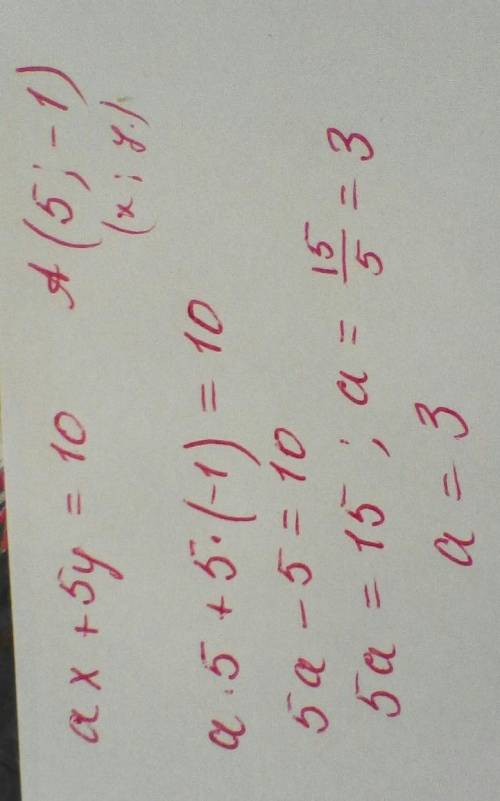 ax + 5y = 10 A (5 ; -1)
(x ; y)
a·5 + 5·(-1) = 10
5a - 5 = 10
5a = 15 ; a = 15/5 = 3
a = 3